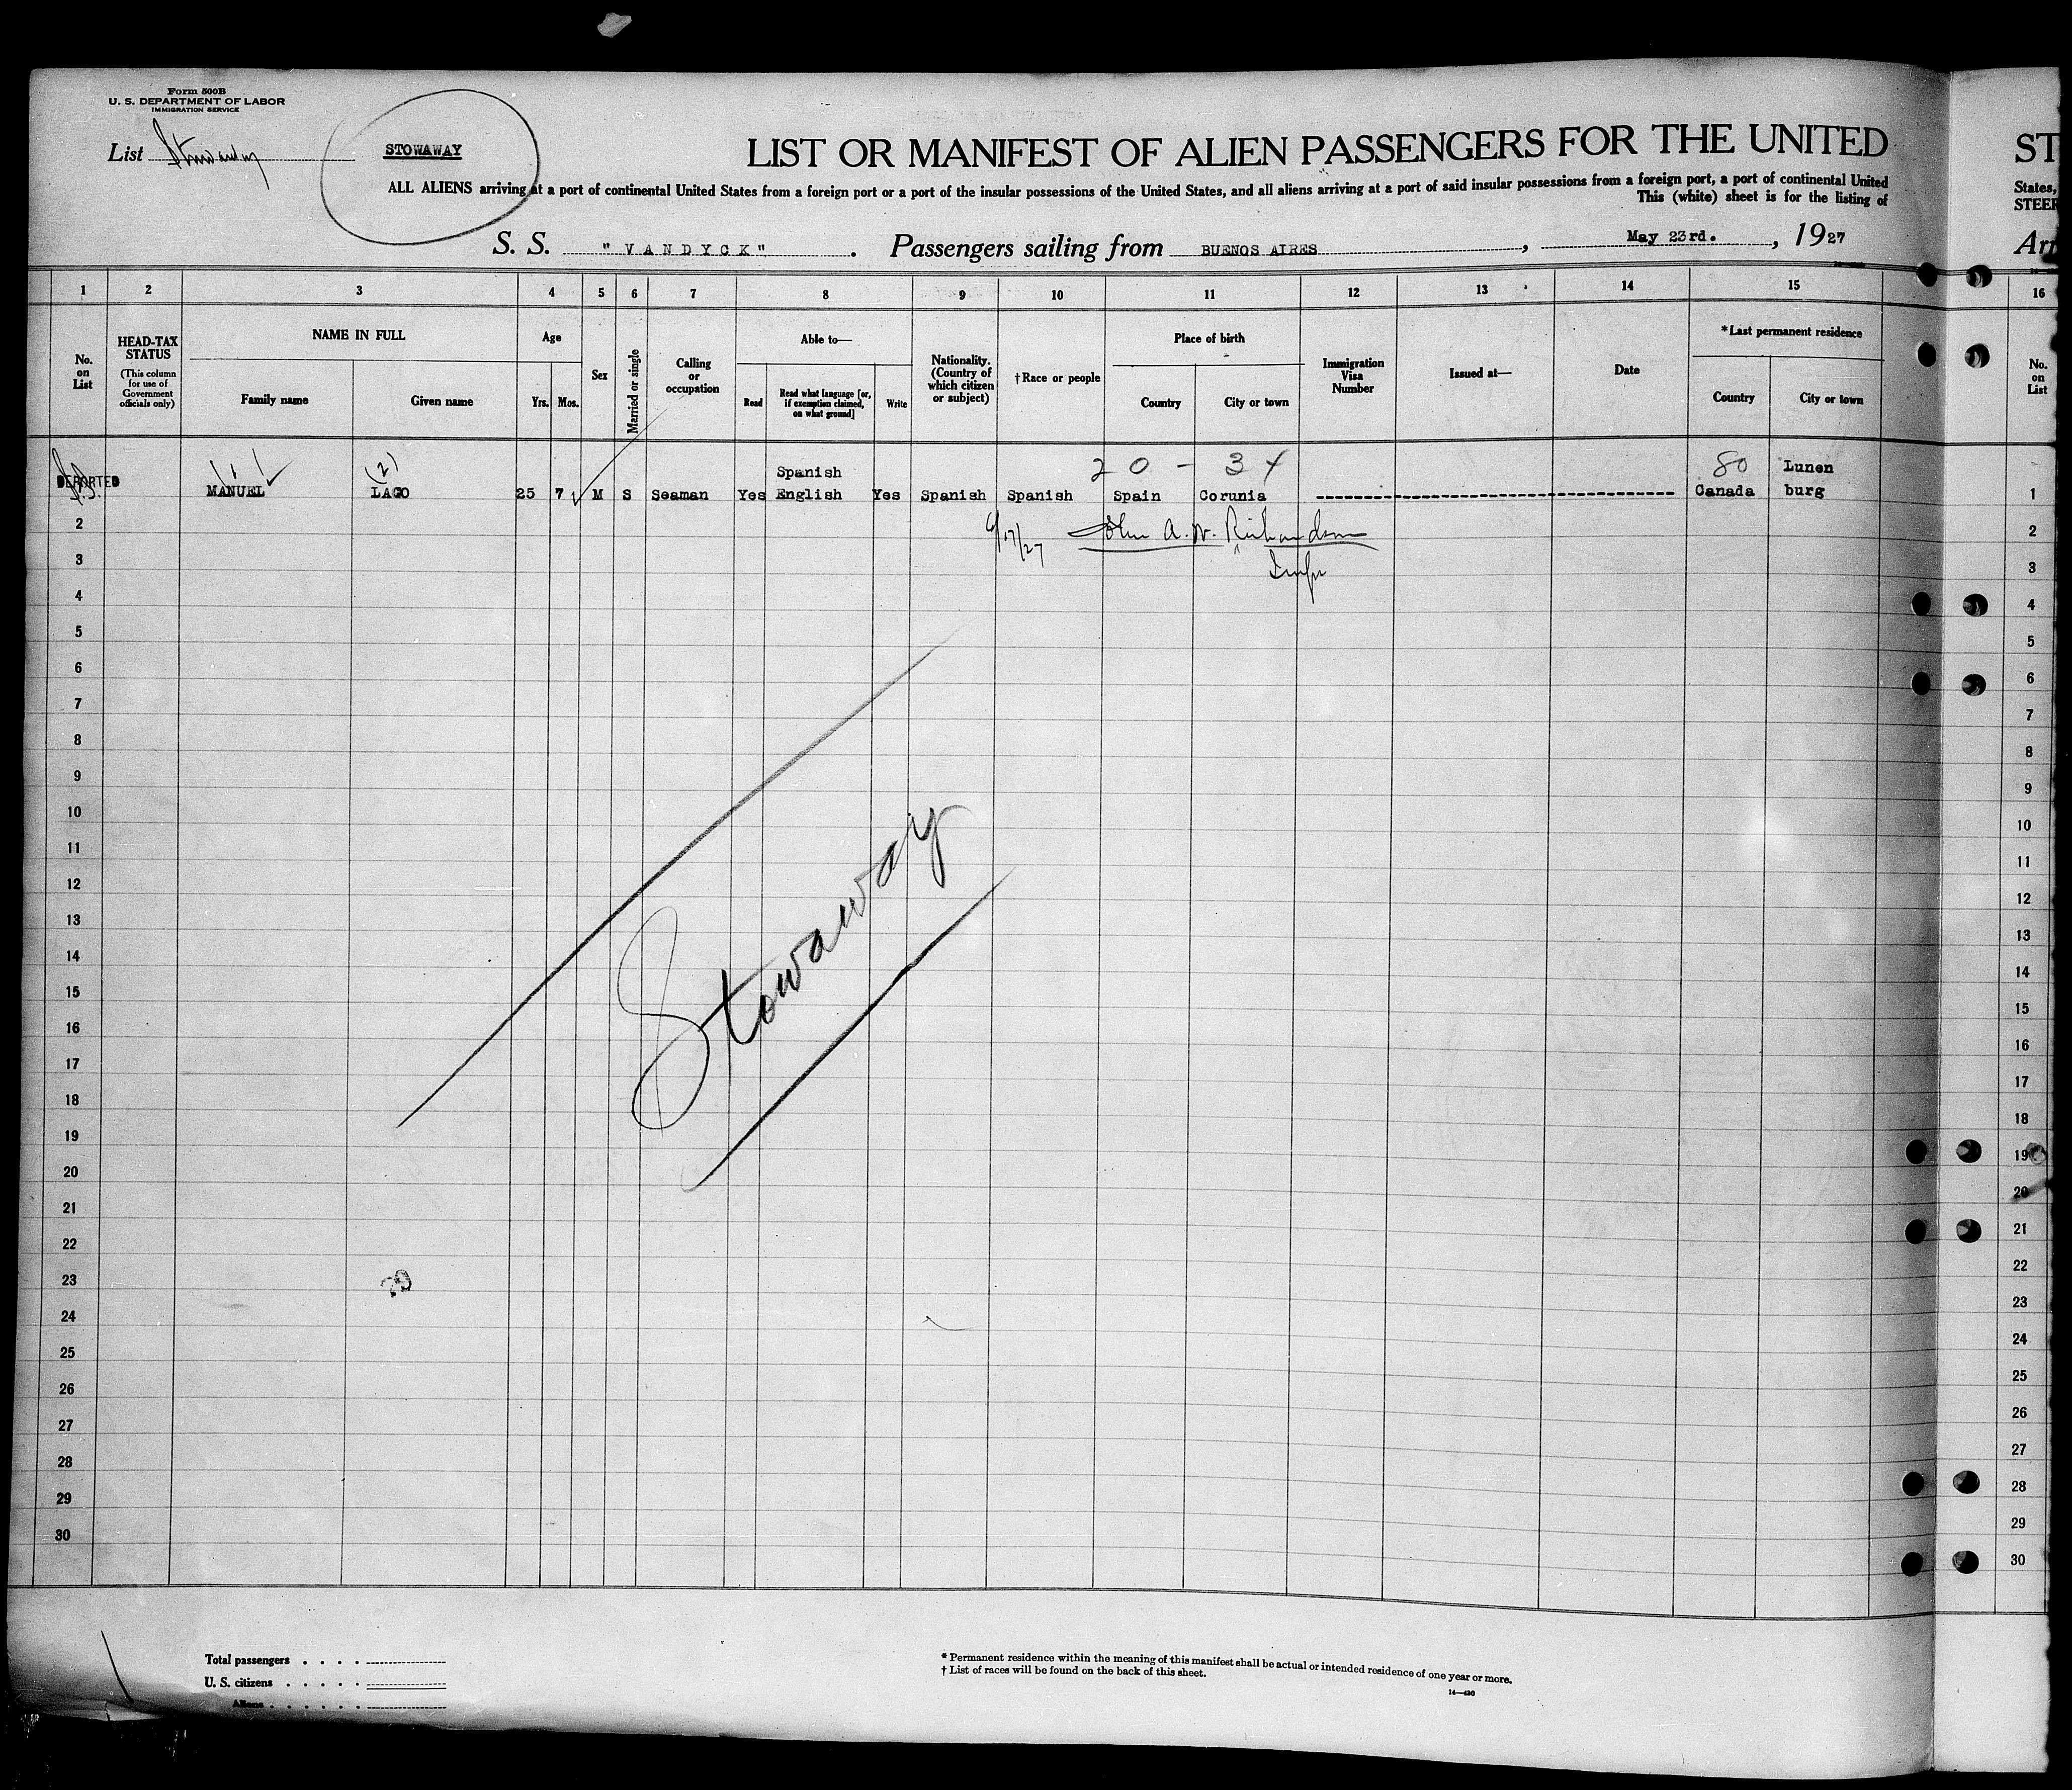 Form 500B
U. S. DEPARTMENT OF LABOR
IMMIGRATION SERVICE
List Stowaway
STOWAWAY
LIST OR MANIFEST OF ALIEN PASSENGERS FOR THE UNITED
ST
ALL ALIENS arriving at a port of continental United States from a foreign port or a port of the insular possessions of the United States, and all aliens arriving at a port of said insular possessions from a foreign port, a port of continental United
States,
This (white) sheet is for the listing of
STEER
S. S. "VANDYCK". Passengers sailing from BUENOS AIRES, May 23rd., 1927
Arr
1 2 3 4 5 6 7 8 9 10 11 12 13 14 15 16
No. on List
HEAD-TAX STATUS
(This column for use of Government officials only)
NAME IN FULL
Family name
Given name
Age
Yrs.
Mos.
Sex
Married or single
Calling or occupation
Able to—
Read
Read what language [or, if exemption claimed, on what ground]
Write
Nationality. (Country of which citizen or subject)
†Race or people
Place of birth
Country
City or town
Immigration Visa Number
Issued at—
Date
*Last permanent residence
Country
City or town
No. on List
(2)
Spanish
20 - 34
80
Lunen
DEPORTED MANUEL LAGO 25 7 M S Seaman Yes English Yes Spanish Spanish Spain Corunia Canada burg 1
2 6/17/27 John A. W. Richardson 2
3 Insp 3
4 4
5 5
6 6
7 7
8 8
9 9
10 10
11 11
12 12
13 13
14 14
15 15
16 16
17 17
18 18
19 19
20 20
21 21
22 22
23 23
24 24
25 25
26 26
27 27
28 28
29 29
30 30
Stowaway
Total passengers . . . .
U. S. citizens . . . . .
Aliens . . . . . .
* Permanent residence within the meaning of this manifest shall be actual or intended residence of one year or more.
† List of races will be found on the back of this sheet.
14—430